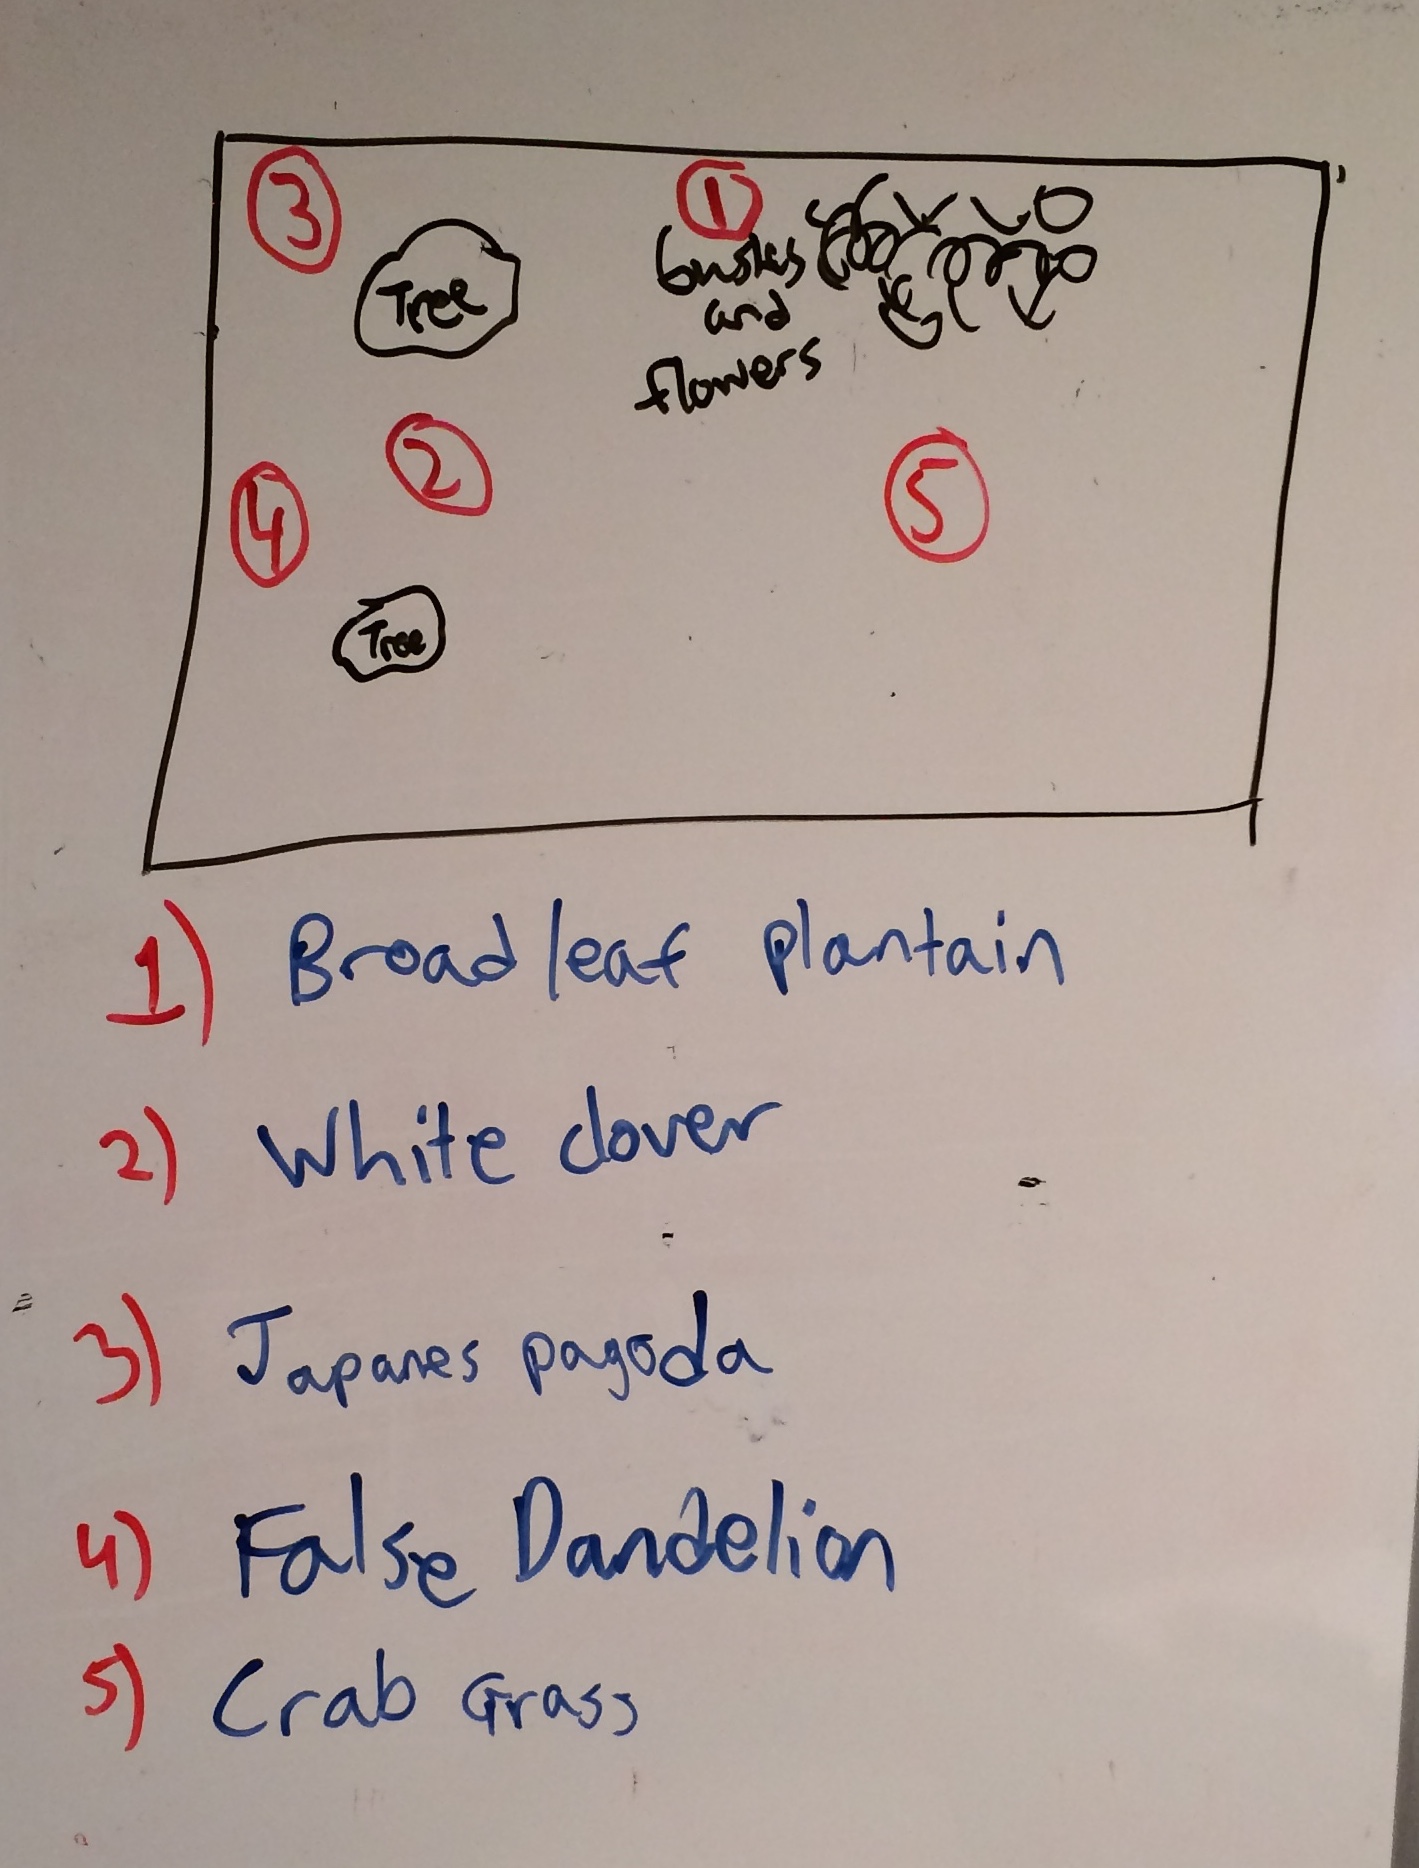 3
1
Tree
bushes
and
flowers
2
4
5
Tree
1) Broad leaf plantain
2) White clover
3) Japanes pagoda
4) False Dandelion
5) Crab Grass